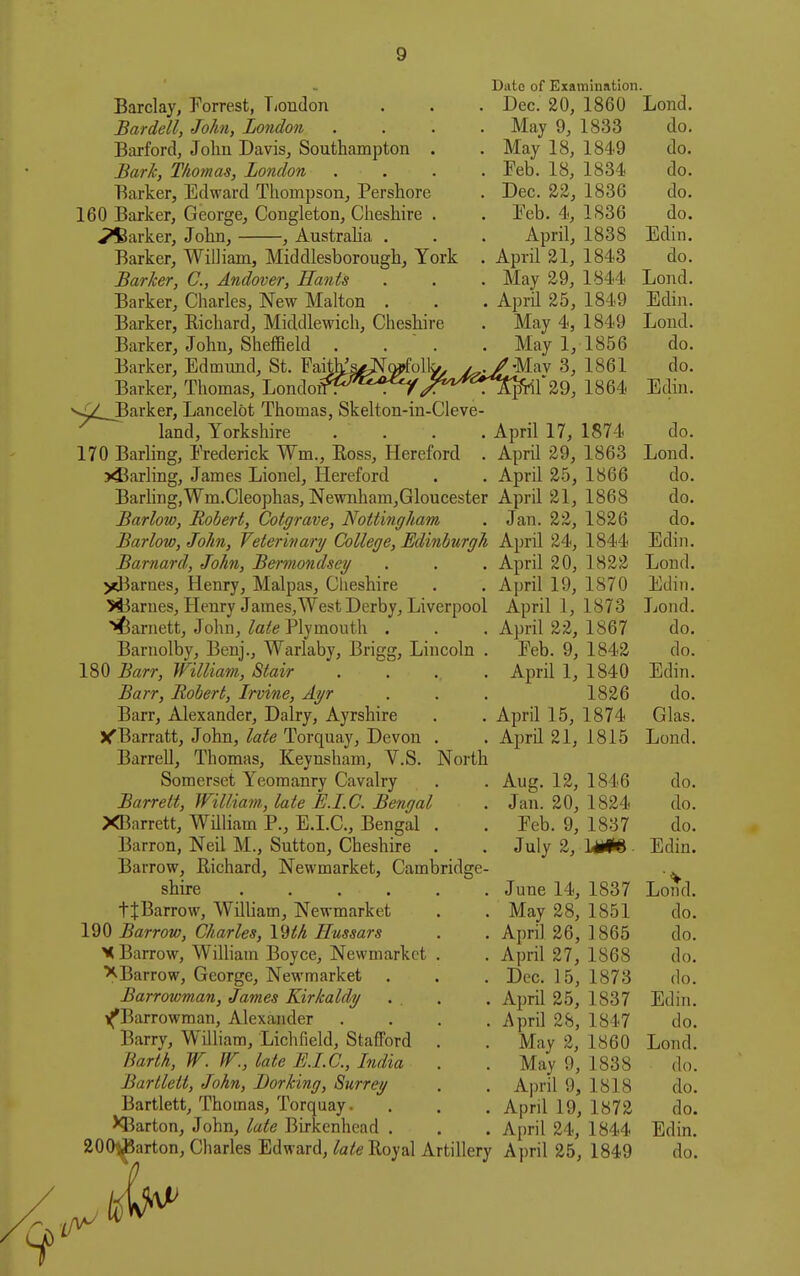 9
Date of Examination.
Barclay, Forrest, London . . . Dec. 20, 1860 Lond.
Bardell, John, London . . . . May 9, 1833 do.
Barford, John Davis, Southampton . . May 18, 1849 do.
Bark, Thomas, London . . . . Feb. 18, 1834 do.
Barker, Edward Thompson, Pershore . Dec. 22, 1836 do.
160 Barker, George, Congleton, Cheshire . . Feb. 4, 1836 do.
Barker, John, ——, Australia . . . April, 1838 Edin.
Barker, William, Middlesborough, York . April 21, 1843 do.
Barker, C., Andover, Hants . . . May 29, 1844 Lond.
Barker, Charles, New Malton . . . April 25, 1849 Edin.
Barker, Richard, Middlewich, Cheshire . May 4, 1849 Lond.
Barker, John, Sheffield . . . . May 1, 1856 do.
Barker, Edmund, St. Faith's, Norfolk, . May 3, 1861 do.
Barker, Thomas, London . . . April 29, 1864 Edin.
Barker, Lancelot Thomas, Skelton-in-Cleve-
land, Yorkshire . . . . April 17, 1874 do.
170 Barling, Frederick Wm., Ross, Hereford . April 29, 1863 Lond.
Barling, James Lionel, Hereford . . April 25, 1866 do.
Barling, Wm. Cleophas, Newnham, Gloucester April 21, 1868 do.
Barlow, Robert, Cotgrave, Nottingham . Jan. 22, 1826 do.
Barlow, John, Veterinary College, Edinburgh April 24, 1844 Edin.
Barnard, John, Bermondsey . . . April 20, 1822 Lond.
Barnes, Henry, Malpas, Cheshire . . April 19, 1870 Edin.
Barnes, Henry James, West Derby, Liverpool April 1, 1873 Lond.
Barnett, John, late Plymouth . . . April 22, 1867 do.
Barnolby, Benj., Warlaby, Brigg, Lincoln . Feb. 9, 1842 do.
180 Barr, William, Stair . . . . April 1, 1840 Edin.
Barr, Robert, Irvine, Ayr . . . 1826 do.
Barr, Alexander, Dalry, Ayrshire . . April 15, 1874 Glas.
Barratt, John, late Torquay, Devon . . April 21, 1815 Lond.
Barrell, Thomas, Keynsham, V.S. North
Somerset Yeomanry Cavalry . . Aug. 12, 1846 do.
Barrett, William, late E.I.C. Bengal . Jan. 20, 1824 do.
Barrett, William P., E.I.C., Bengal . . Feb. 9, 1837 do.
Barron, Neil M., Sutton, Cheshire . . July 2, Edin.
Barrow, Richard, Newmarket, Cambridge-
shire . . . . . . June 14, 1837 Lond.
†‡Barrow, William, Newmarket . . May 28, 1851 do.
190 Barrow, Charles, 19th Hussars . . April 26, 1865 do.
Barrow, William Boyce, Newmarket . . April 27, 1868 do.
Barrow, George, Newmarket . . . Dec. 15, 1873 do.
Barrowman, James Kirkaldy . . . April 25, 1837 Edin.
Barrowman, Alexander . . . . April 28, 1847 do.
Barry, William, Lichfield, Stafford . . May 2, 1860 Lond.
Barth, W. W., late E.I.C., India . . May 9, 1838 do.
Bartlett, John, Dorking, Surrey . . April 9, 1818 do.
Bartlett, Thomas, Torquay. . . . April 19, 1872 do.
Barton, John, late Birkenhead . . . April 24, 1844 Edin.
200 Barton, Charles Edward, late Royal Artillery April 25, 1849 do.